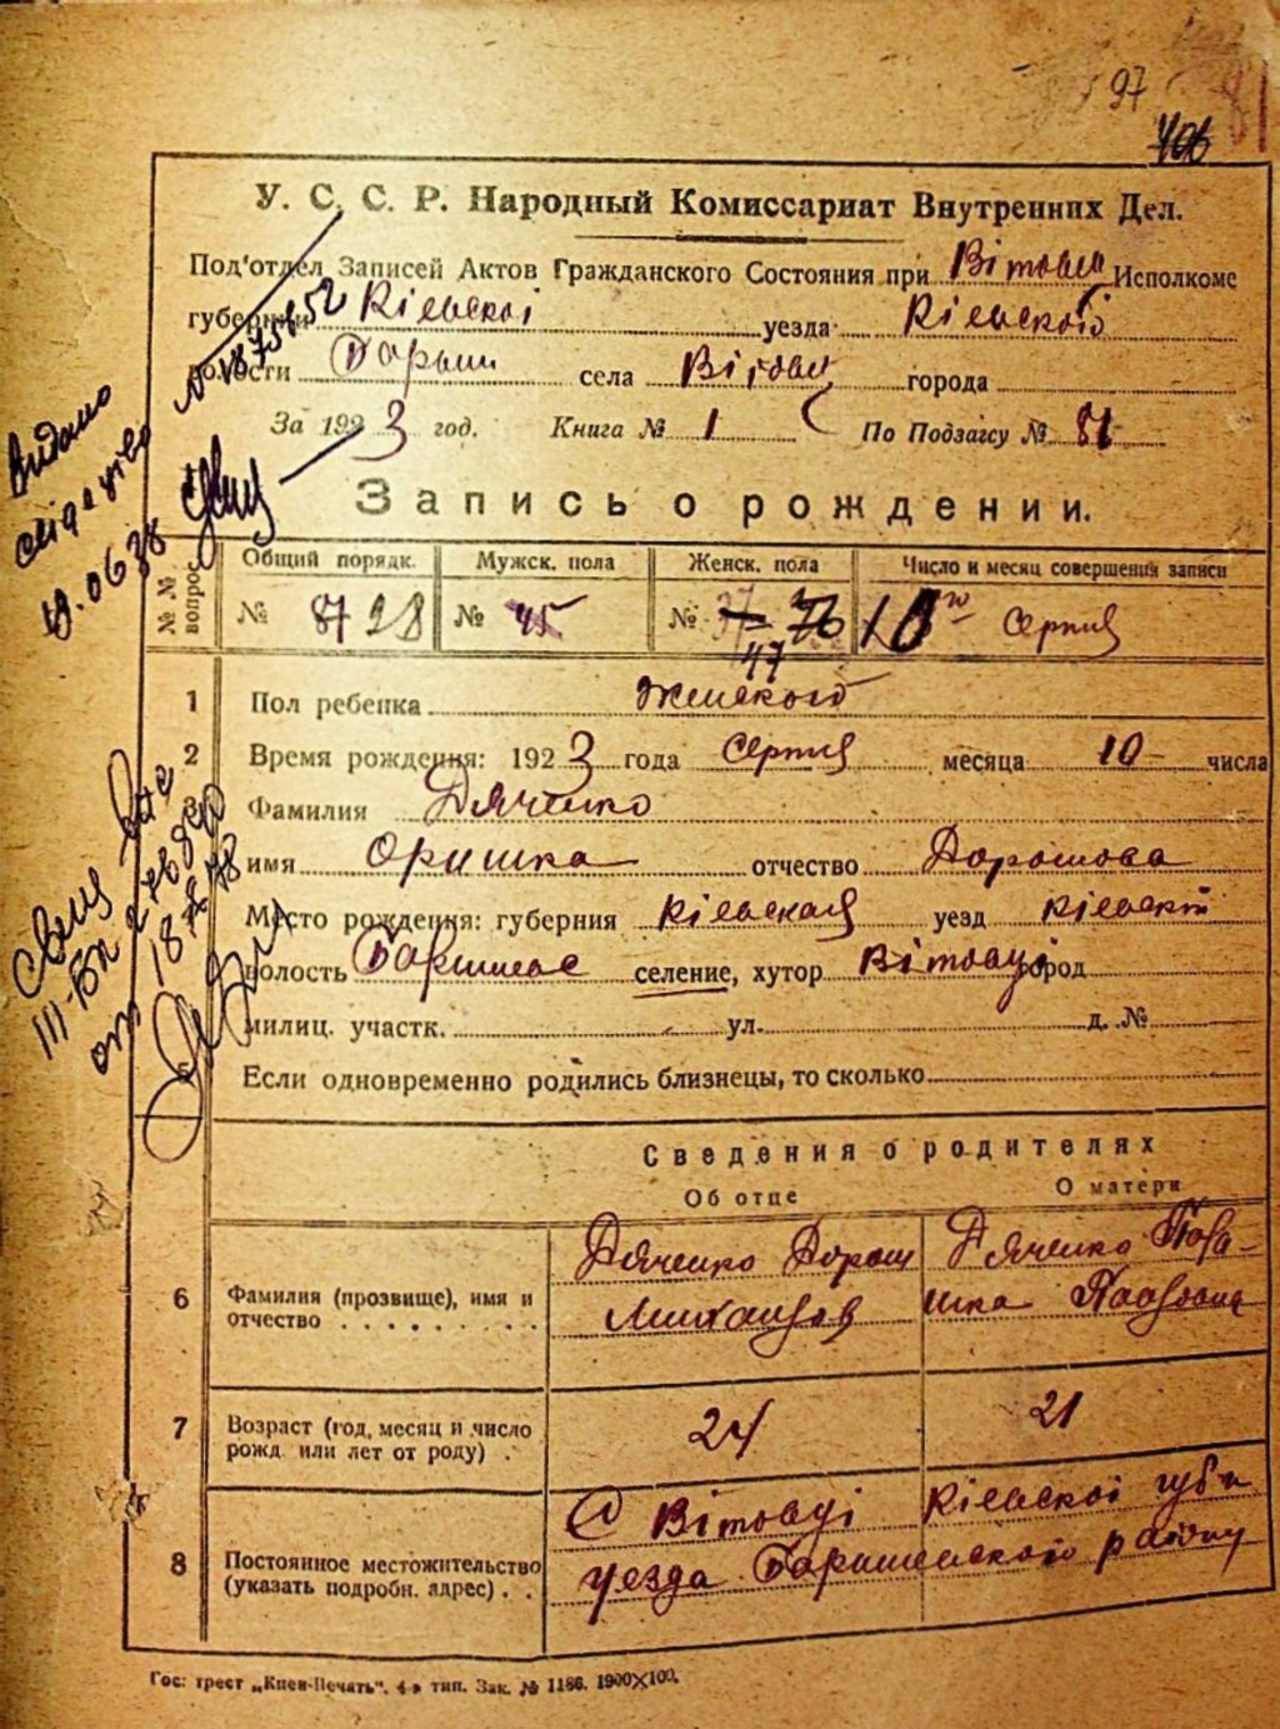 97
406
81
У. С. С. Р. Народный Комиссариат Внутренних Дел.
Под'отдел Записей Актов Гражданского Состояния при Вітовец Исполкоме
губернии Кіевскоі уезда Кіевского
волости Барыш села Вітовці города
За 1923 год. Книга № 1 По Подзагсу № 81
Видано
свідетво
№ 1875652
Запись о рождении.
№ № вопрос.
Общий порядк. Мужск. пола Женск. пола Число и месяц совершения записи
№ 87 98 № 45 № 37 36 47 10го Серпня
1 Пол ребенка Женского
2 Время рождения: 1923 года Серпня месяца 10 числа
3 Фамилия Дяченко
имя Оришка отчество Дорошова
Место рождения: губерния Кіевская уезд Кіевскій
волость Баришевс селение, хутор Вітовці город
милиц. участк. ул. д. №
5 Если одновременно родились близнецы, то сколько
от 18
Сведения о родителях
Об отце О матери
6 Фамилия (прозвище), имя и отчество Дяченко Дорош Михайлов Дяченко Пара- шка Павловна
7 Возраст (год, месяц и число рожд. или лет от роду) 24 21
8 Постоянное местожительство (указать подробн. адрес) С Вітовці Кіевскоі губ и
уезда Баришевского району
Гос: трест „Киев-Печать". 4-я тип. Зак. № 1186. 1900×100.